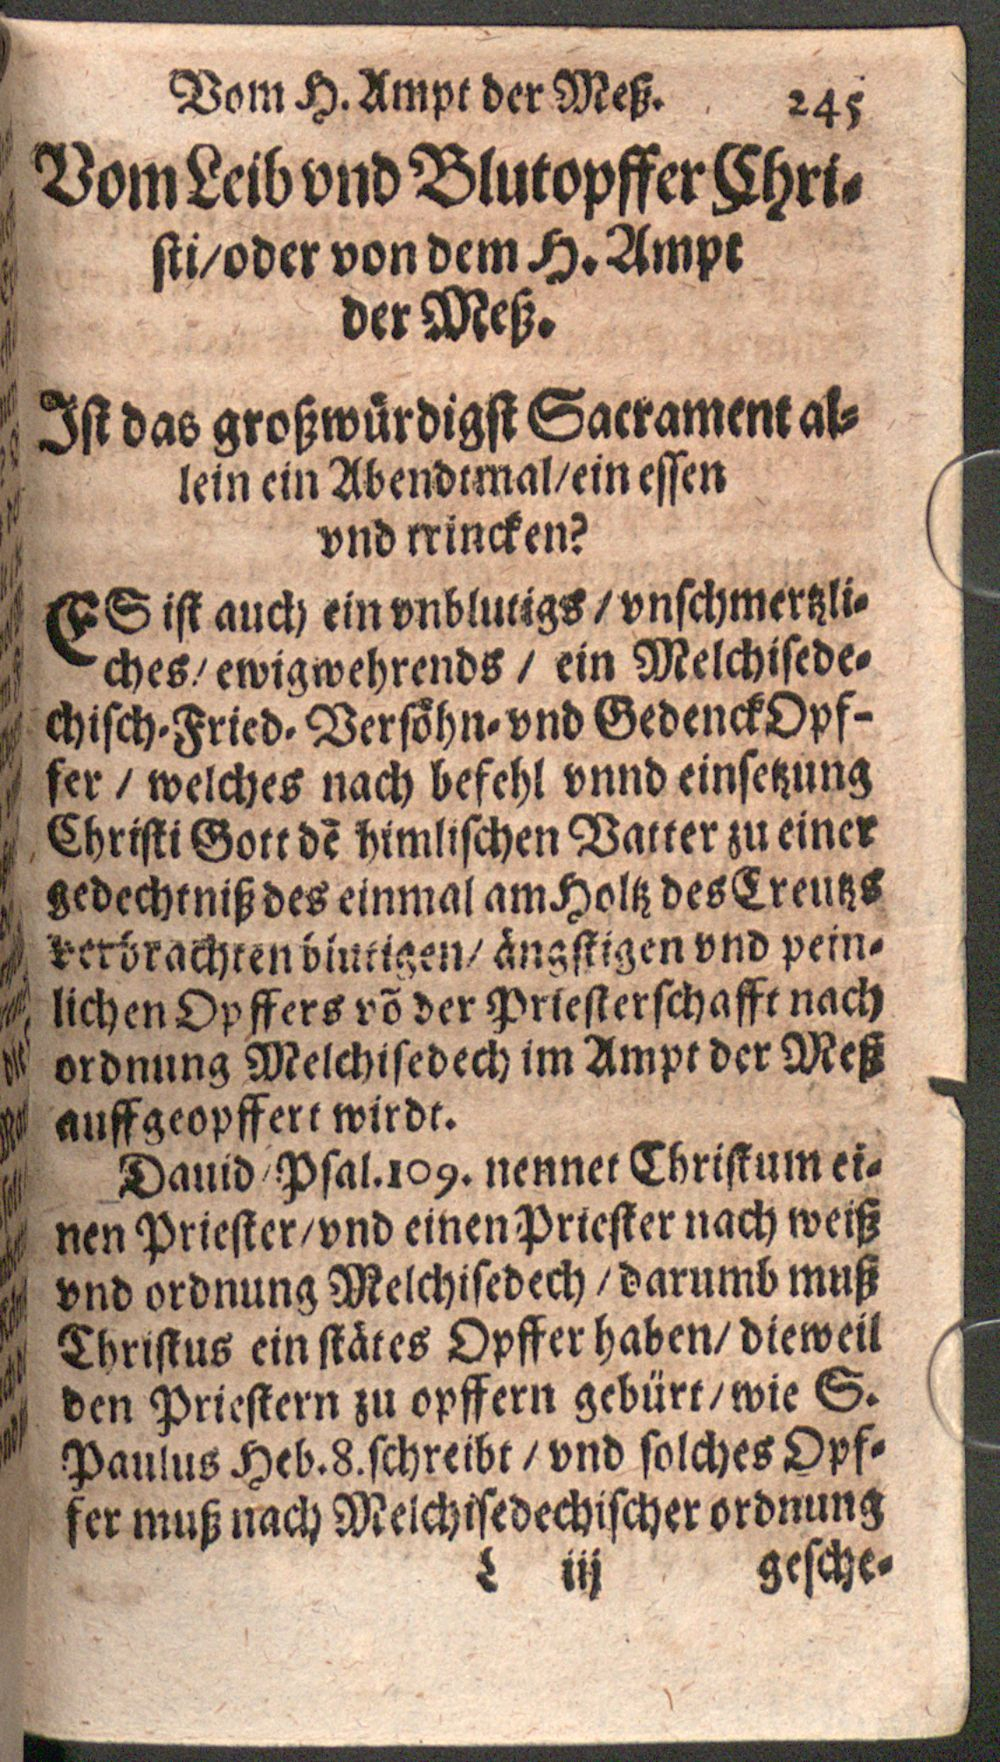 Vom H. Ampt der Meß. 245
Vom Leib vnd Blutopffer Chri-
sti/oder von dem H. Ampt
der Meß.
Ist das großwürdigst Sacrament al-
lein ein Abendtmal/ein essen
vnd trincken?
ES ist auch ein vnblutigs / vnschmertzli-
ches/ ewigwehrends / ein Melchisede-
chisch-Fried- Versöhn- vnd GedenckOpf-
fer / welches nach befehl vnnd einsetzung
Christi Gott dē himlischen Vatter zu einer
gedechtniß des einmal am Holtz des Creutzs
verbrachten blutigen/ ängstigen vnd pein-
lichen Opffers võ der Priesterschafft nach
ordnung Melchisedech im Ampt der Meß
auffgeopffert wirdt.
Dauid /Psal.109. nennet Christum ei-
nen Priester/vnd einen Priester nach weiß
vnd ordnung Melchisedech / darumb muß
Christus ein stätes Opffer haben/ dieweil
den Priestern zu opffern gebürt/wie S.
Paulus Heb.8.schreibt / vnd solches Opf-
fer muß nach Melchisedechischer ordnung
L iij gesche-